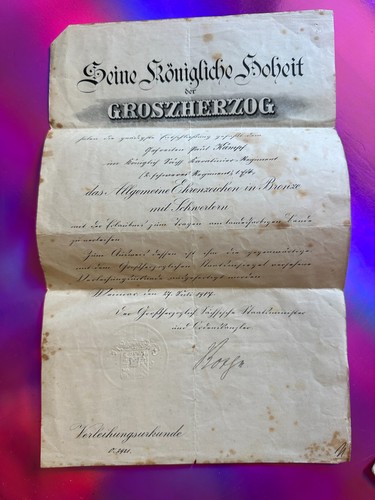 Seine Königliche Hoheit
der
GROSZHERZOG
haben die gnädigste Entschließung gefaßt dem
Gefreiten Paul Kumpf
im Königlich Säch
das Allgemeine Ehrenzeichen in Bronze
mit Schwertern
mit der Erlaubnis zum Tragen am Bande
zu verleihen.
Zum Ausweis dessen ist ihm die gegenwärtige
mit dem Großherzoglichen Staatssiegel versehene
Verleihungsurkunde ausgefertigt worden.
Weimar den 27. Juli 1917.
Der Großherzoglich Sächsische Staatsminister
und Ordenskanzler
Verleihungsurkunde